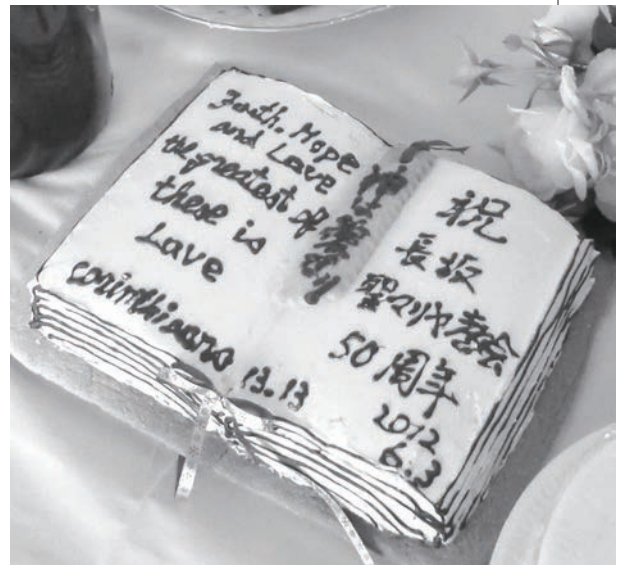 Faith. Hope
and Love
the greatest of
these is
Love
corinthians 13.13
神は愛なり
祝
長坂
聖マリヤ教会
50周年
2012
6.3